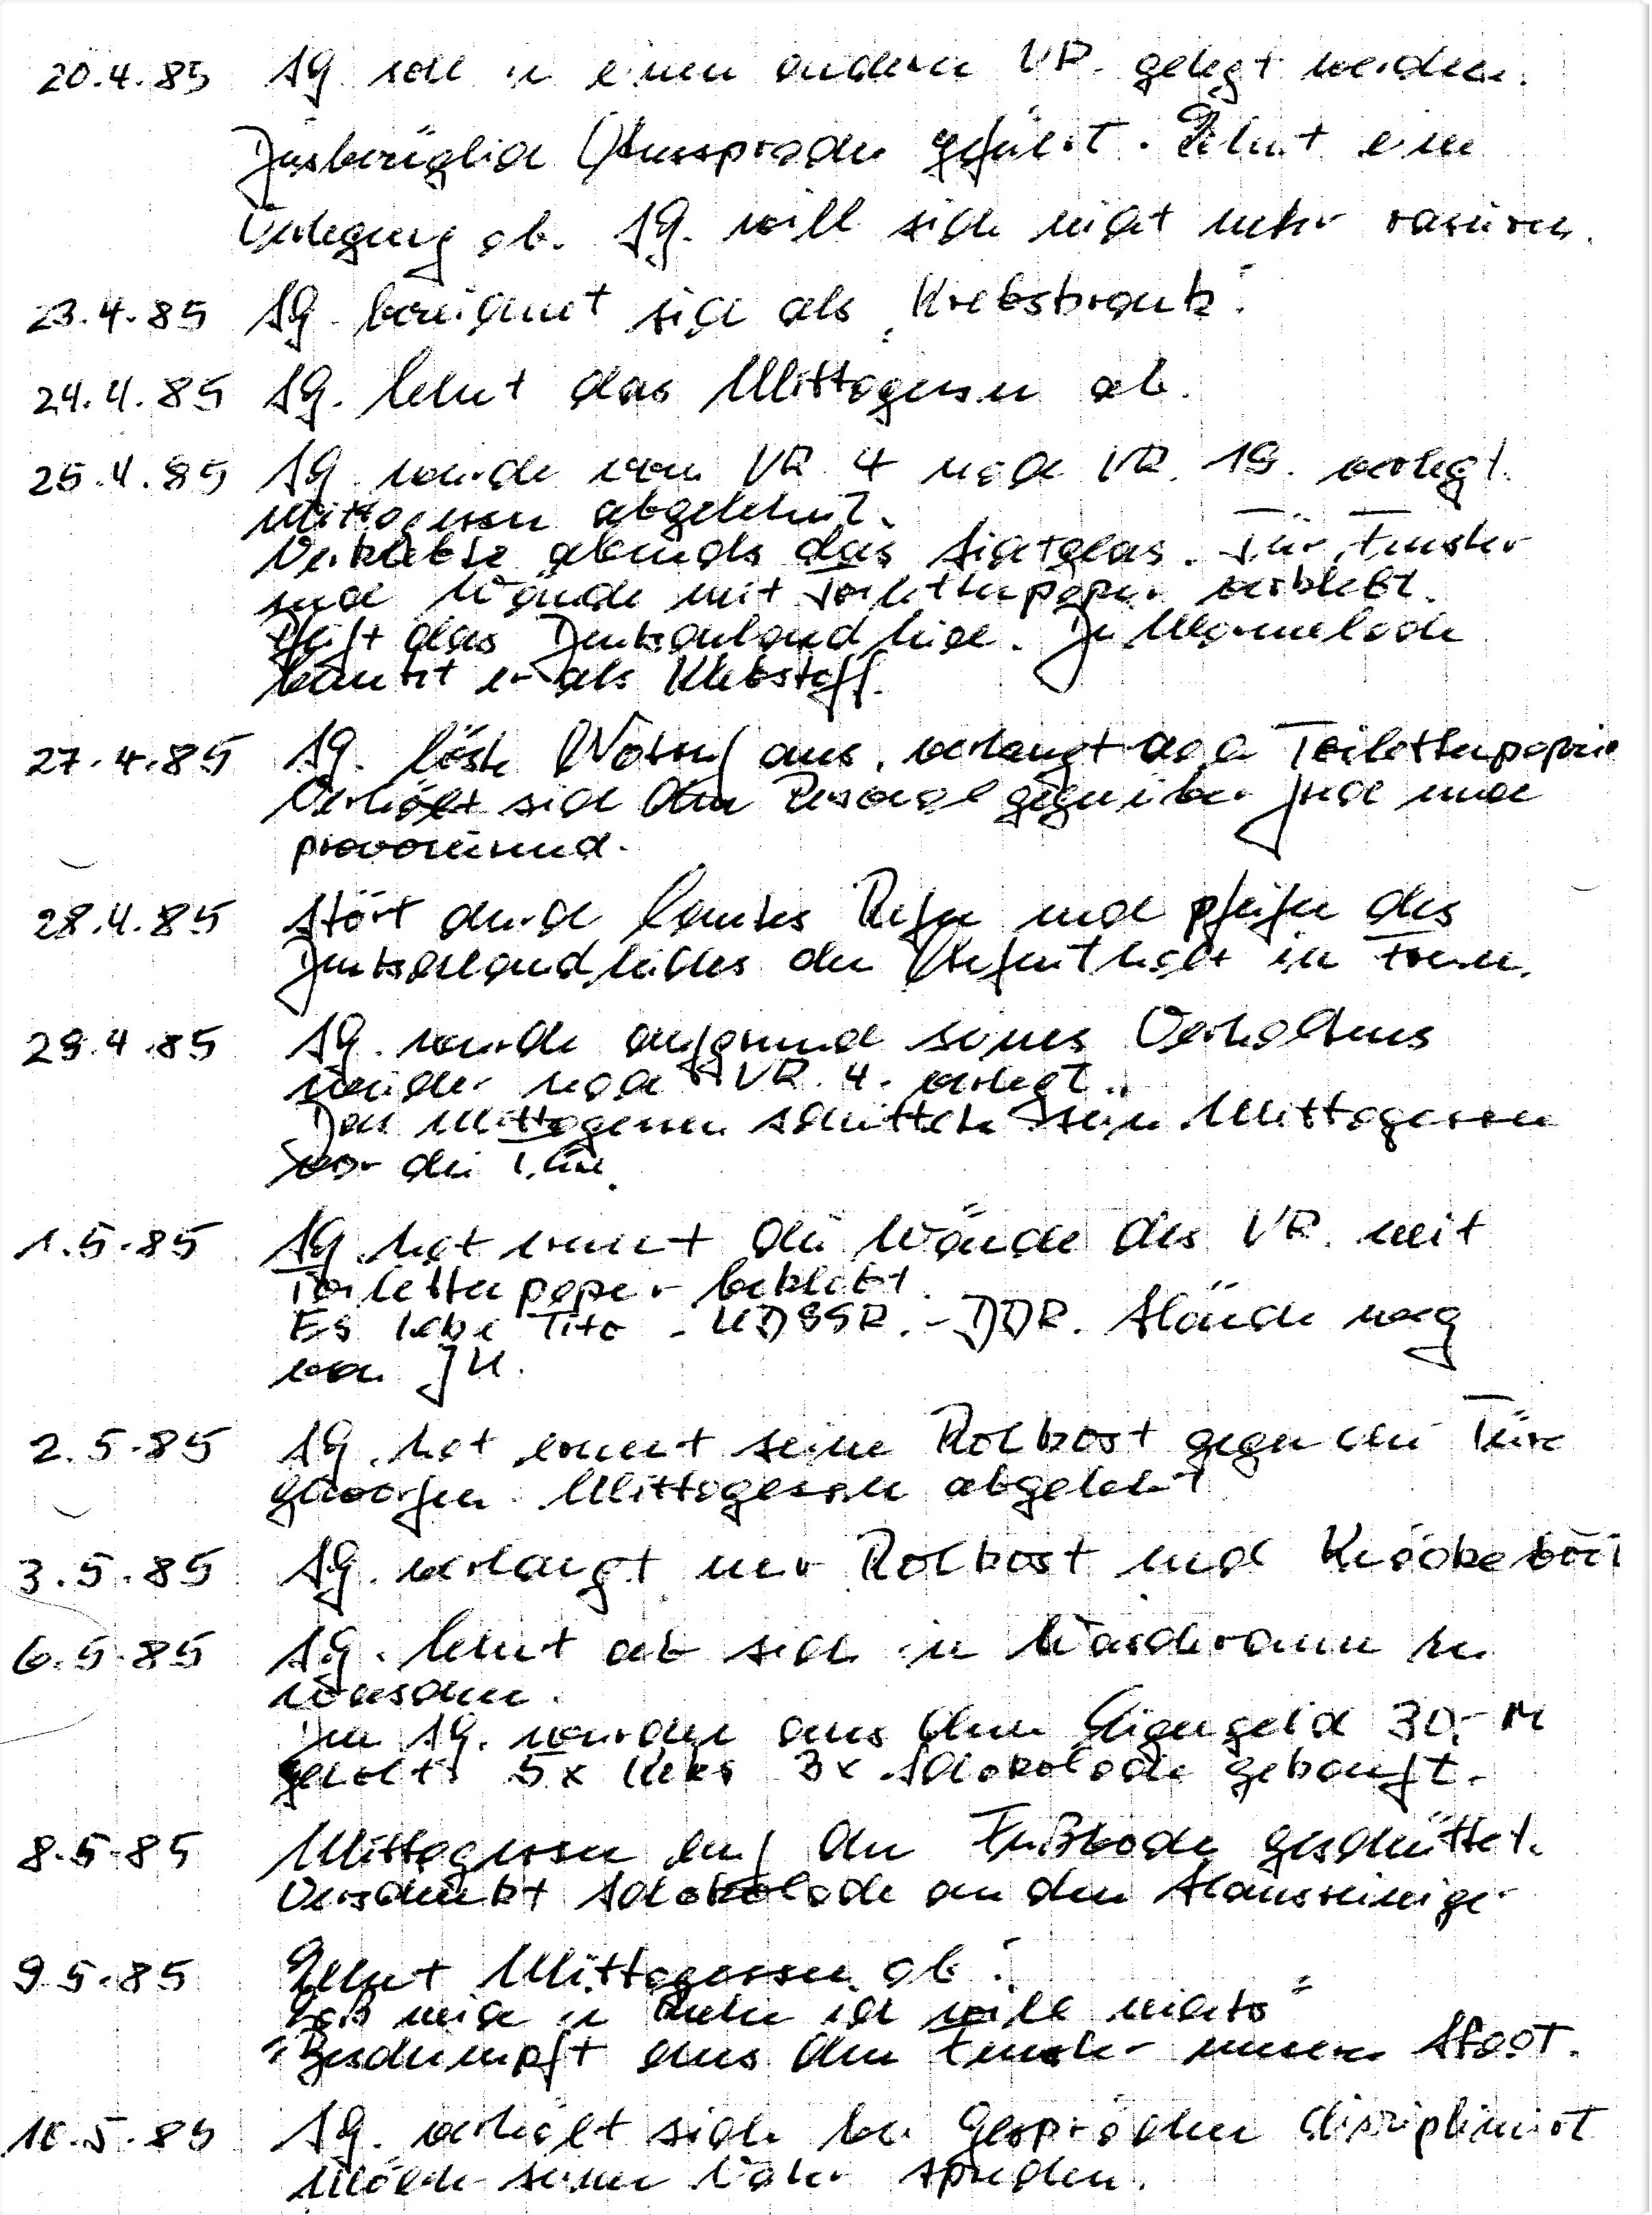 20.4.85 SG. soll in einen anderen VR. gelegt werden.
Diesbezüglich Aussprache geführt. Lehnt eine
Verlegung ab. SG. will sich nicht mehr rasieren.
23.4.85 SG. bezeichnet sich als „Krebskrank“.
24.4.85 SG. lehnt das Mittagessen ab.
25.4.85 SG. wurde von VR 4 nach VR. 19. verlegt.
Mittagessen abgelehnt.
Verklebte abends das Sichtglas. Tür, Fenster
und Wände mit Toilettenpapier verklebt.
Pfeift das Deutschlandlied. Die Marmelade
benutzt er als Klebstoff.
27.4.85 SG. löste Notruf aus, verlangt nach Toilettenpapier
Verhält sich dem Personal gegenüber frech und
provozierend.
28.4.85 Stört durch lautes Rufen und pfeifen des
Deutschlandliedes den Aufenthalt im Freien.
29.4.85 SG. wurde aufgrund seines Verhaltens
wieder nach VR. 4. verlegt.
Das Mittagessen schüttete sein Mittagessen
vor die Tür.
1.5.85 SG. hat erneut die Wände des VR. mit
Toilettenpapier beklebt.
Es lebe Tito - UDSSR. - DDR. Hände weg
von JU.
2.5.85 SG. hat erneut seine Rohkost gegen die Türe
geworfen. Mittagessen abgelehnt
3.5.85 SG. verlangt nur Rohkost und Knäckebrot
6.5.85 SG. lehnt ab sich im Waschraum zu
waschen.
Dem SG. wurden aus dem Eigengeld 30,- M
geholt. 5x Keks 3x Schokolade gekauft.
8.5.85 Mittagessen auf den Fußboden geschüttet.
Verschenkt Schokolade an den Hausreiniger
9.5.85 Lehnt Mittagessen ab.
„Laß mich in Ruhe ich will nichts“
Beschimpft aus dem Fenster unseren Staat.
10.5.85 SG. verhält sich bei Gesprächen diszipliniert
Möchte seinen Vater sprechen.